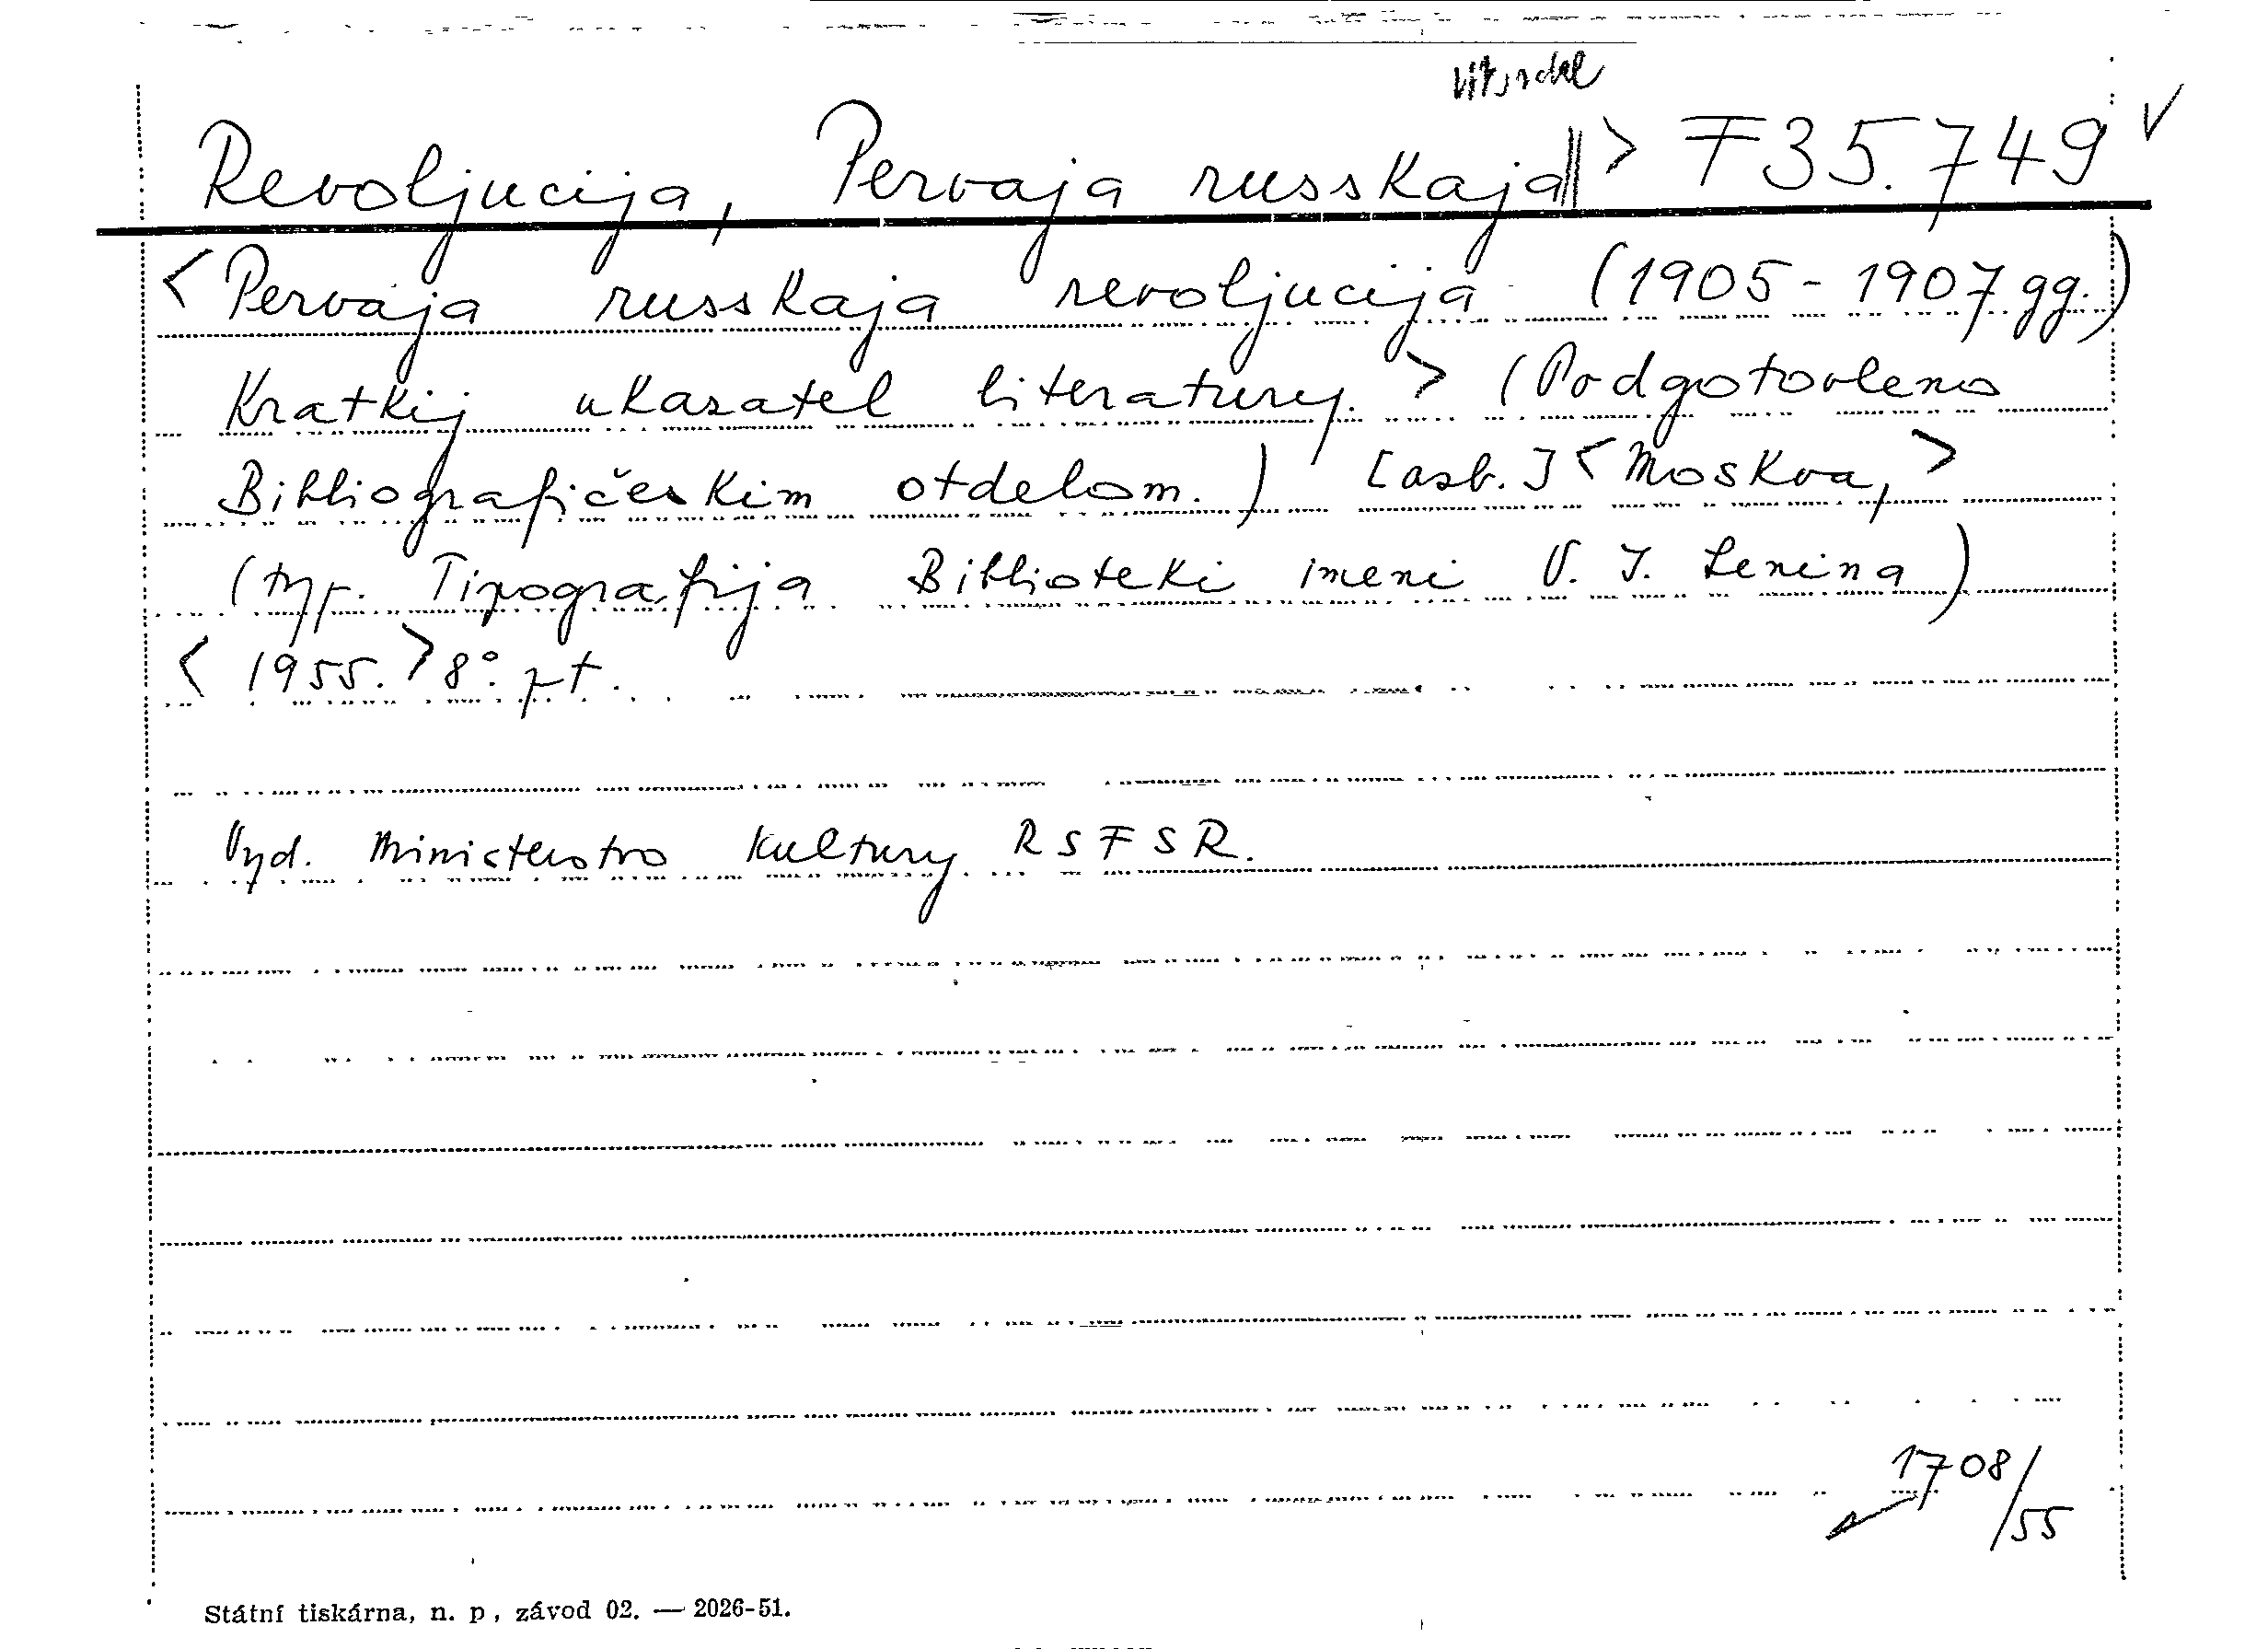 Revoljucija, Pervaja russkaja‖ > F 35.749 ✓
< Pervaja russkaja revoljucija (1905-1907 gg.)
Kratkij ukazatel literatury. > (Podgotovleno
Bibliografičeskim otdelom.) [azb.] < Moskva, >
(typ. Tipografija Biblioteki imeni V. I. Lenina)
< 1955. > 8°. pt.
Vyd. Ministerstvo Kultury RSFSR.
1708/55
Státní tiskárna, n. p., závod 02. — 2026-51.